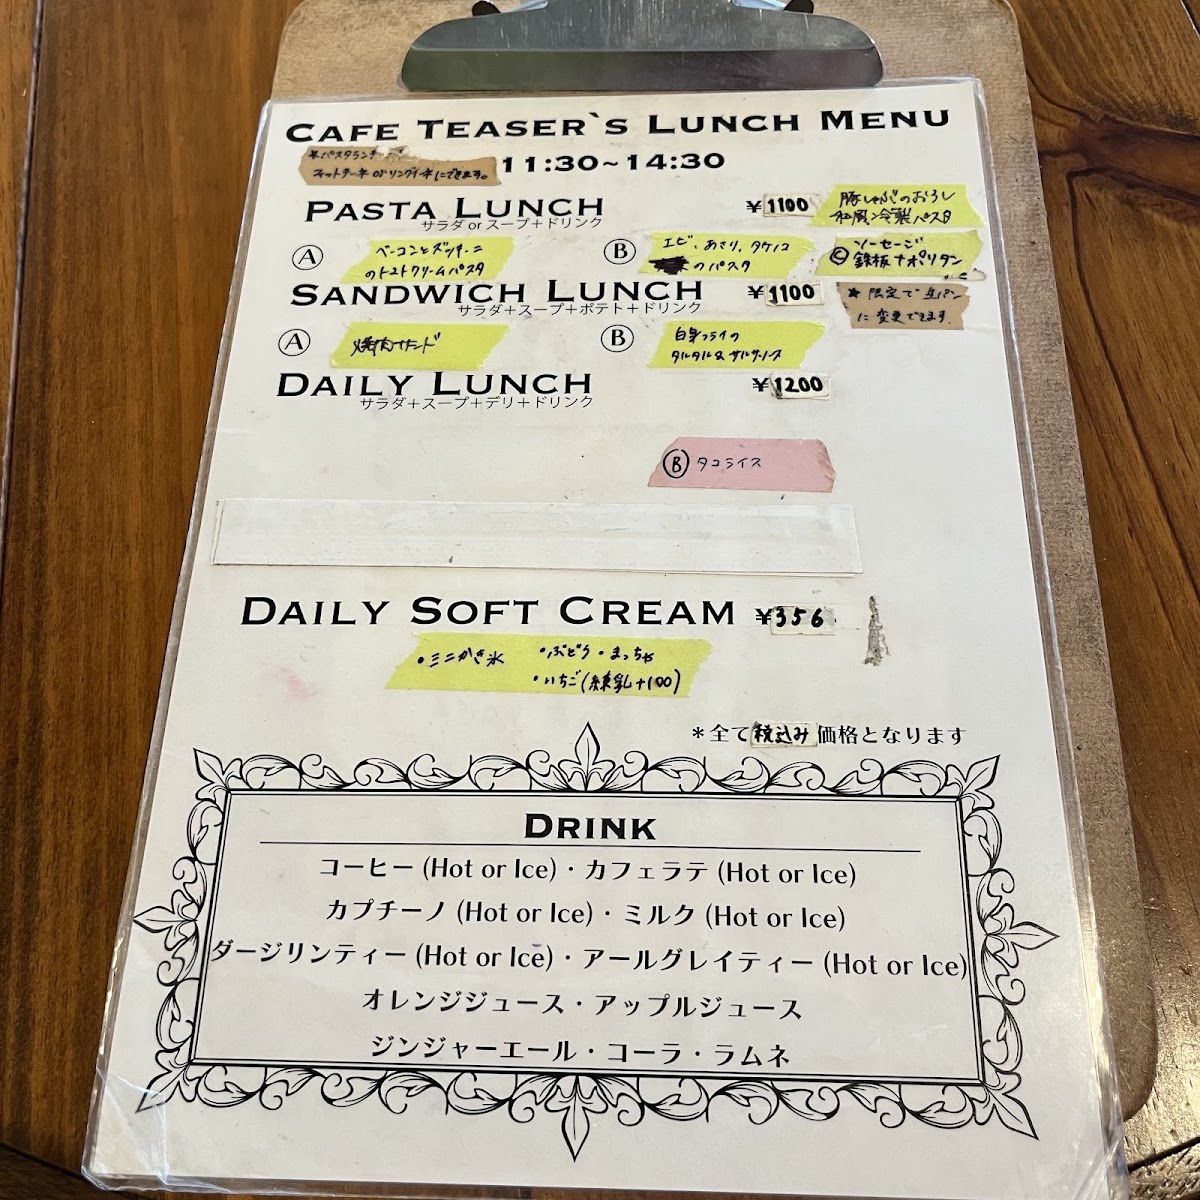 CAFE TEASER`S LUNCH MENU
*パスタランチ
フェットチーネ or リングイーネにできます。
11:30~14:30
PASTA LUNCH ¥1100
サラダ or スープ+ドリンク
豚しゃぶのおろし
和風冷製パスタ
Ⓐ ベーコンとズッキーニ
のトマトクリームパスタ
Ⓑ エビ、あさり、タケノコ
のパスタ
Ⓒ ソーセージ
鉄板ナポリタン
SANDWICH LUNCH ¥1100
サラダ+スープ+ポテト+ドリンク
* 限定で
に変更できます。
Ⓐ 焼肉サンド
Ⓑ 白身フライの
タルタル&サルサソース
DAILY LUNCH ¥1200
サラダ+スープ+デリ+ドリンク
Ⓑ タコライス
DAILY SOFT CREAM ¥356
・ミニかき氷 ・ぶどう・まっちゃ
・いちご(練乳+100)
*全て税込み価格となります
DRINK
コーヒー (Hot or Ice)・カフェラテ (Hot or Ice)
カプチーノ (Hot or Ice)・ミルク (Hot or Ice)
ダージリンティー (Hot or Ice)・アールグレイティー (Hot or Ice)
オレンジジュース・アップルジュース
ジンジャーエール・コーラ・ラムネ